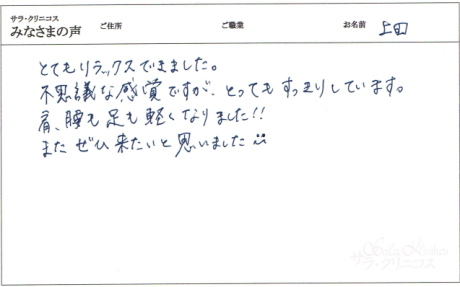 サラ・クリニコス
みなさまの声 ご住所 ご職業 お名前 上田
とてもリラックスできました。
不思議な感覚ですが、とってもすっきりしています。
肩、腰も足も軽くなりました!!
また ぜひ 来たいと思いました
Sala Klinikos
サラ・クリニコス